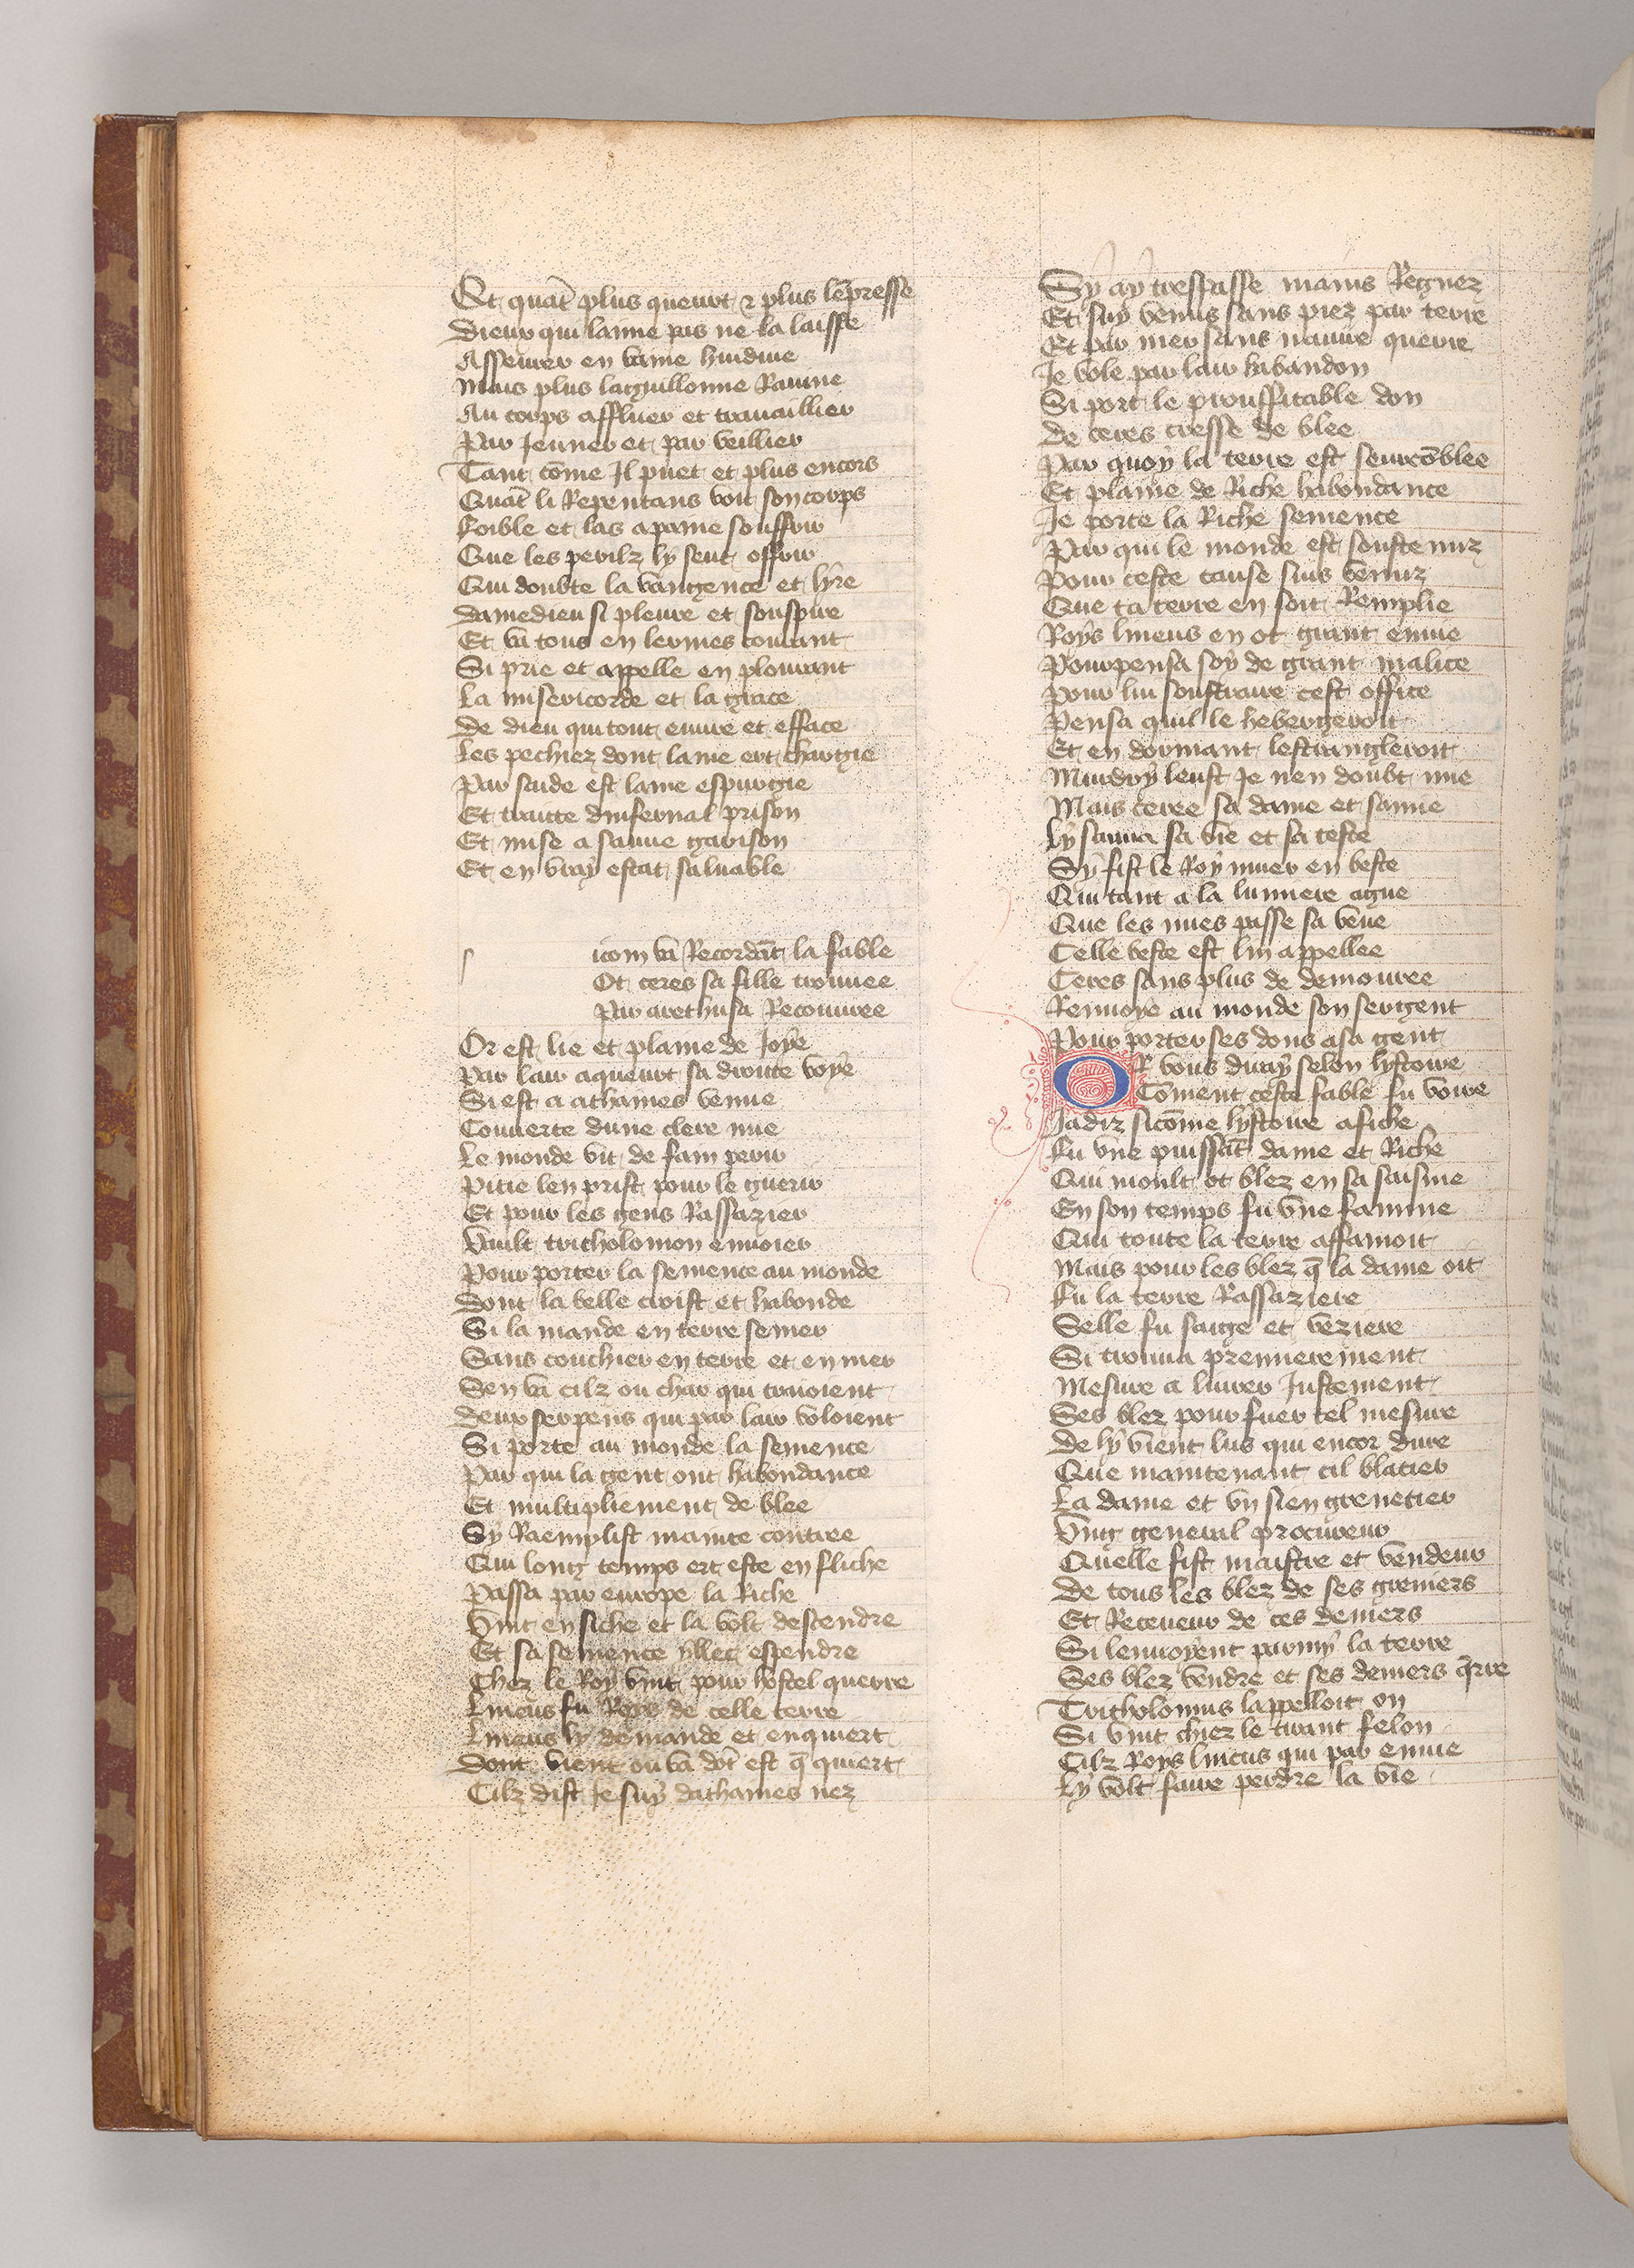 Et quāt plus queurt ⁊ plus lēpresse
Dieux qui lame pas ne la laisse
Asseurer en vaine huidiue
Mais plus laguillonne Rauine
Au corps affluer et trauaillier
Par Jeuner et par veillier
Tant cōme Jl puet et plus encors
Quāt li Repentans voit son corps
Foible et las a paine souffrir
Que les perilz ly seut offrir
Qui doubte la vangence et lyre
Damedieu si pleure et souspire
Et va tous en lermes courant
Si prie et appelle en plourant
La misericorde et la grace
De dieu qui tout cuure et efface
Les pechiez dont lame ert chargie
Par saide est lame espurgie
Et traitte dinfernal prison
Et mise a sauue garison
Et en vray estat saluable
s icom va Recordāt la fable
Ot ceres sa fille trouuee
Par arethusa Recouuree
Or est lie et plaine de Joye
Par lair aqueurt sa droitte voye
Si est a athaines venue
Couuerte dune clere nue
Le monde vit de fain perir
Pitie len prist pour le guerir
Et pour les gens Rassazier
Vault tritholomon enuoier
Pour porter la semence au monde
Dont la belle croist et habonde
Si la mande en terre semer
Sans couchier en terre et en mer
Sen va cilz ou char qui trayoient
Deux serpens qui par lair voloient
Si porte au monde la semence
Par qui la gent ont habondance
Et multipliement de blee
Sy Raemplist mainte contree
Qui long temps ert este en fliche
Passa par europe la Riche
Vint en siche et la volt descendre
Et sa semence yllec espendre
Chez le Roy vint pour hostel querre
Lincus fu Roys de celle terre
Lincus ly demande et enquiert
Dont vient ou va dōt est q̄ quiert
Cilz dist Je suy dathaines nez
Sy ay trespasse mains Regnez
Et suy venus sans piez par terre
Et par mer sans nauire querre
Je vole par lair habandon
Si port le prouffitable don
De ceres cresse de blee
Par quoy la terre est seurcōblee
Et plaine de Riche habondance
Je porte la Riche semence
Par qui le monde est soustenuz
Pour ceste cause suis venuz
Que ta terre en soit Remplie
Roys lincus en ot grant enuie
Pourpensa soy de grant malice
Pour lui soustraire cest office
Pensa quil le hebergeroit
Et en dormant lestrangleroit
Murdry leust Je nen doubt mie
Mais ceree sa dame et samie
Ly sauua sa vie et sa teste
Sy fist le Roy muer en beste
Qui tant a la lumiere ague
Que les nues passe sa veue
Celle beste est lin appellee
Ceres sans plus de demouree
Renuoye au monde son sergent
Pour porter ses dons a sa gent
OR vous diray selon lystoire
Cōment ceste fable fu voire
Jadiz sicōme lystoire afiche
Fu vne puissāt dame et Riche
Qui moult ot blez en sa saisine
En son temps fu vne famine
Qui toute la terre affamoit
Mais pour les blez q̄ la dame oit
Fu la terre Rassaziere
Selle fu saige et veziere
Si trouua premierement
Mesure a liurer Justement
Ses blez pour fuer tel mesure
De ly vient lus qui encor dure
Que maintenant cil blatier
La dame et vn sien grenetier
Vng general procureur
Quelle fist maistre et vendeur
De tous les blez de ses greniers
Et Receueur de ces deniers
Si lenuoyent parmy la terre
Ses blez vendre et ses deniers q̄rre
Tritholomus lappelloit on
Si vint chiez le tirant felon
Cilz Roys lincus qui par enuie
Ly volt faire perdre la vie